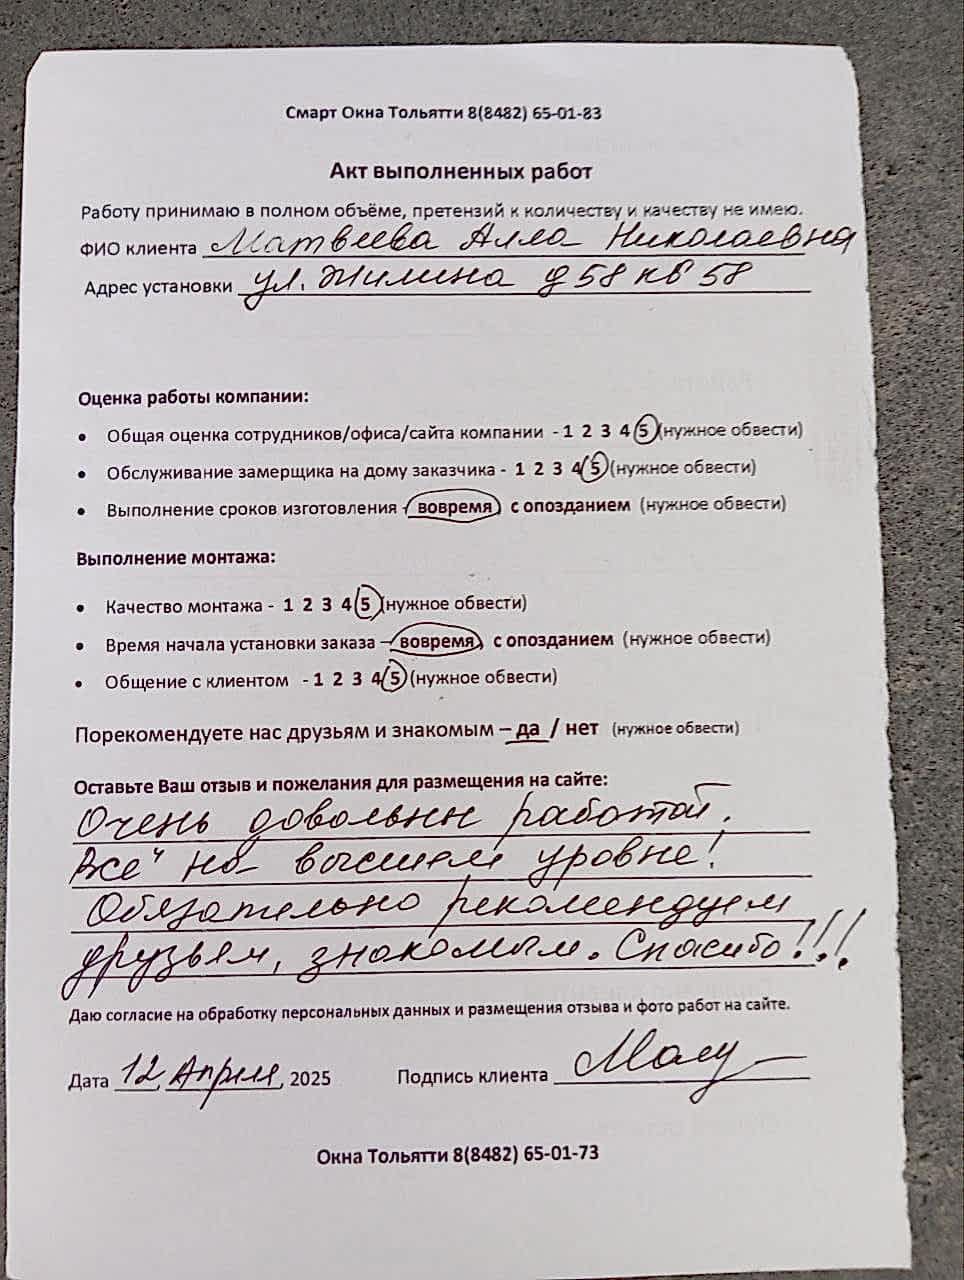 Смарт Окна Тольятти 8(8482) 65-01-83
Акт выполненных работ
Работу принимаю в полном объёме, претензий к количеству и качеству не имею.
ФИО клиента Матвеева Алла Николаевна
Адрес установки ул. Жилина д 58 кв 58
Оценка работы компании:
• Общая оценка сотрудников/офиса/сайта компании - 1 2 3 4 5 (нужное обвести)
• Обслуживание замерщика на дому заказчика - 1 2 3 4 5 (нужное обвести)
• Выполнение сроков изготовления - вовремя, с опозданием (нужное обвести)
Выполнение монтажа:
• Качество монтажа - 1 2 3 4 5 (нужное обвести)
• Время начала установки заказа – вовремя, с опозданием (нужное обвести)
• Общение с клиентом - 1 2 3 4 5 (нужное обвести)
Порекомендуете нас друзьям и знакомым – да / нет (нужное обвести)
Оставьте Ваш отзыв и пожелания для размещения на сайте:
Очень довольны работой.
Всё на высшем уровне!
Обязательно рекомендуем
друзьям, знакомым. Спасибо!!!
Даю согласие на обработку персональных данных и размещения отзыва и фото работ на сайте.
Дата 12, Апреля, 2025 Подпись клиента
Окна Тольятти 8(8482) 65-01-73